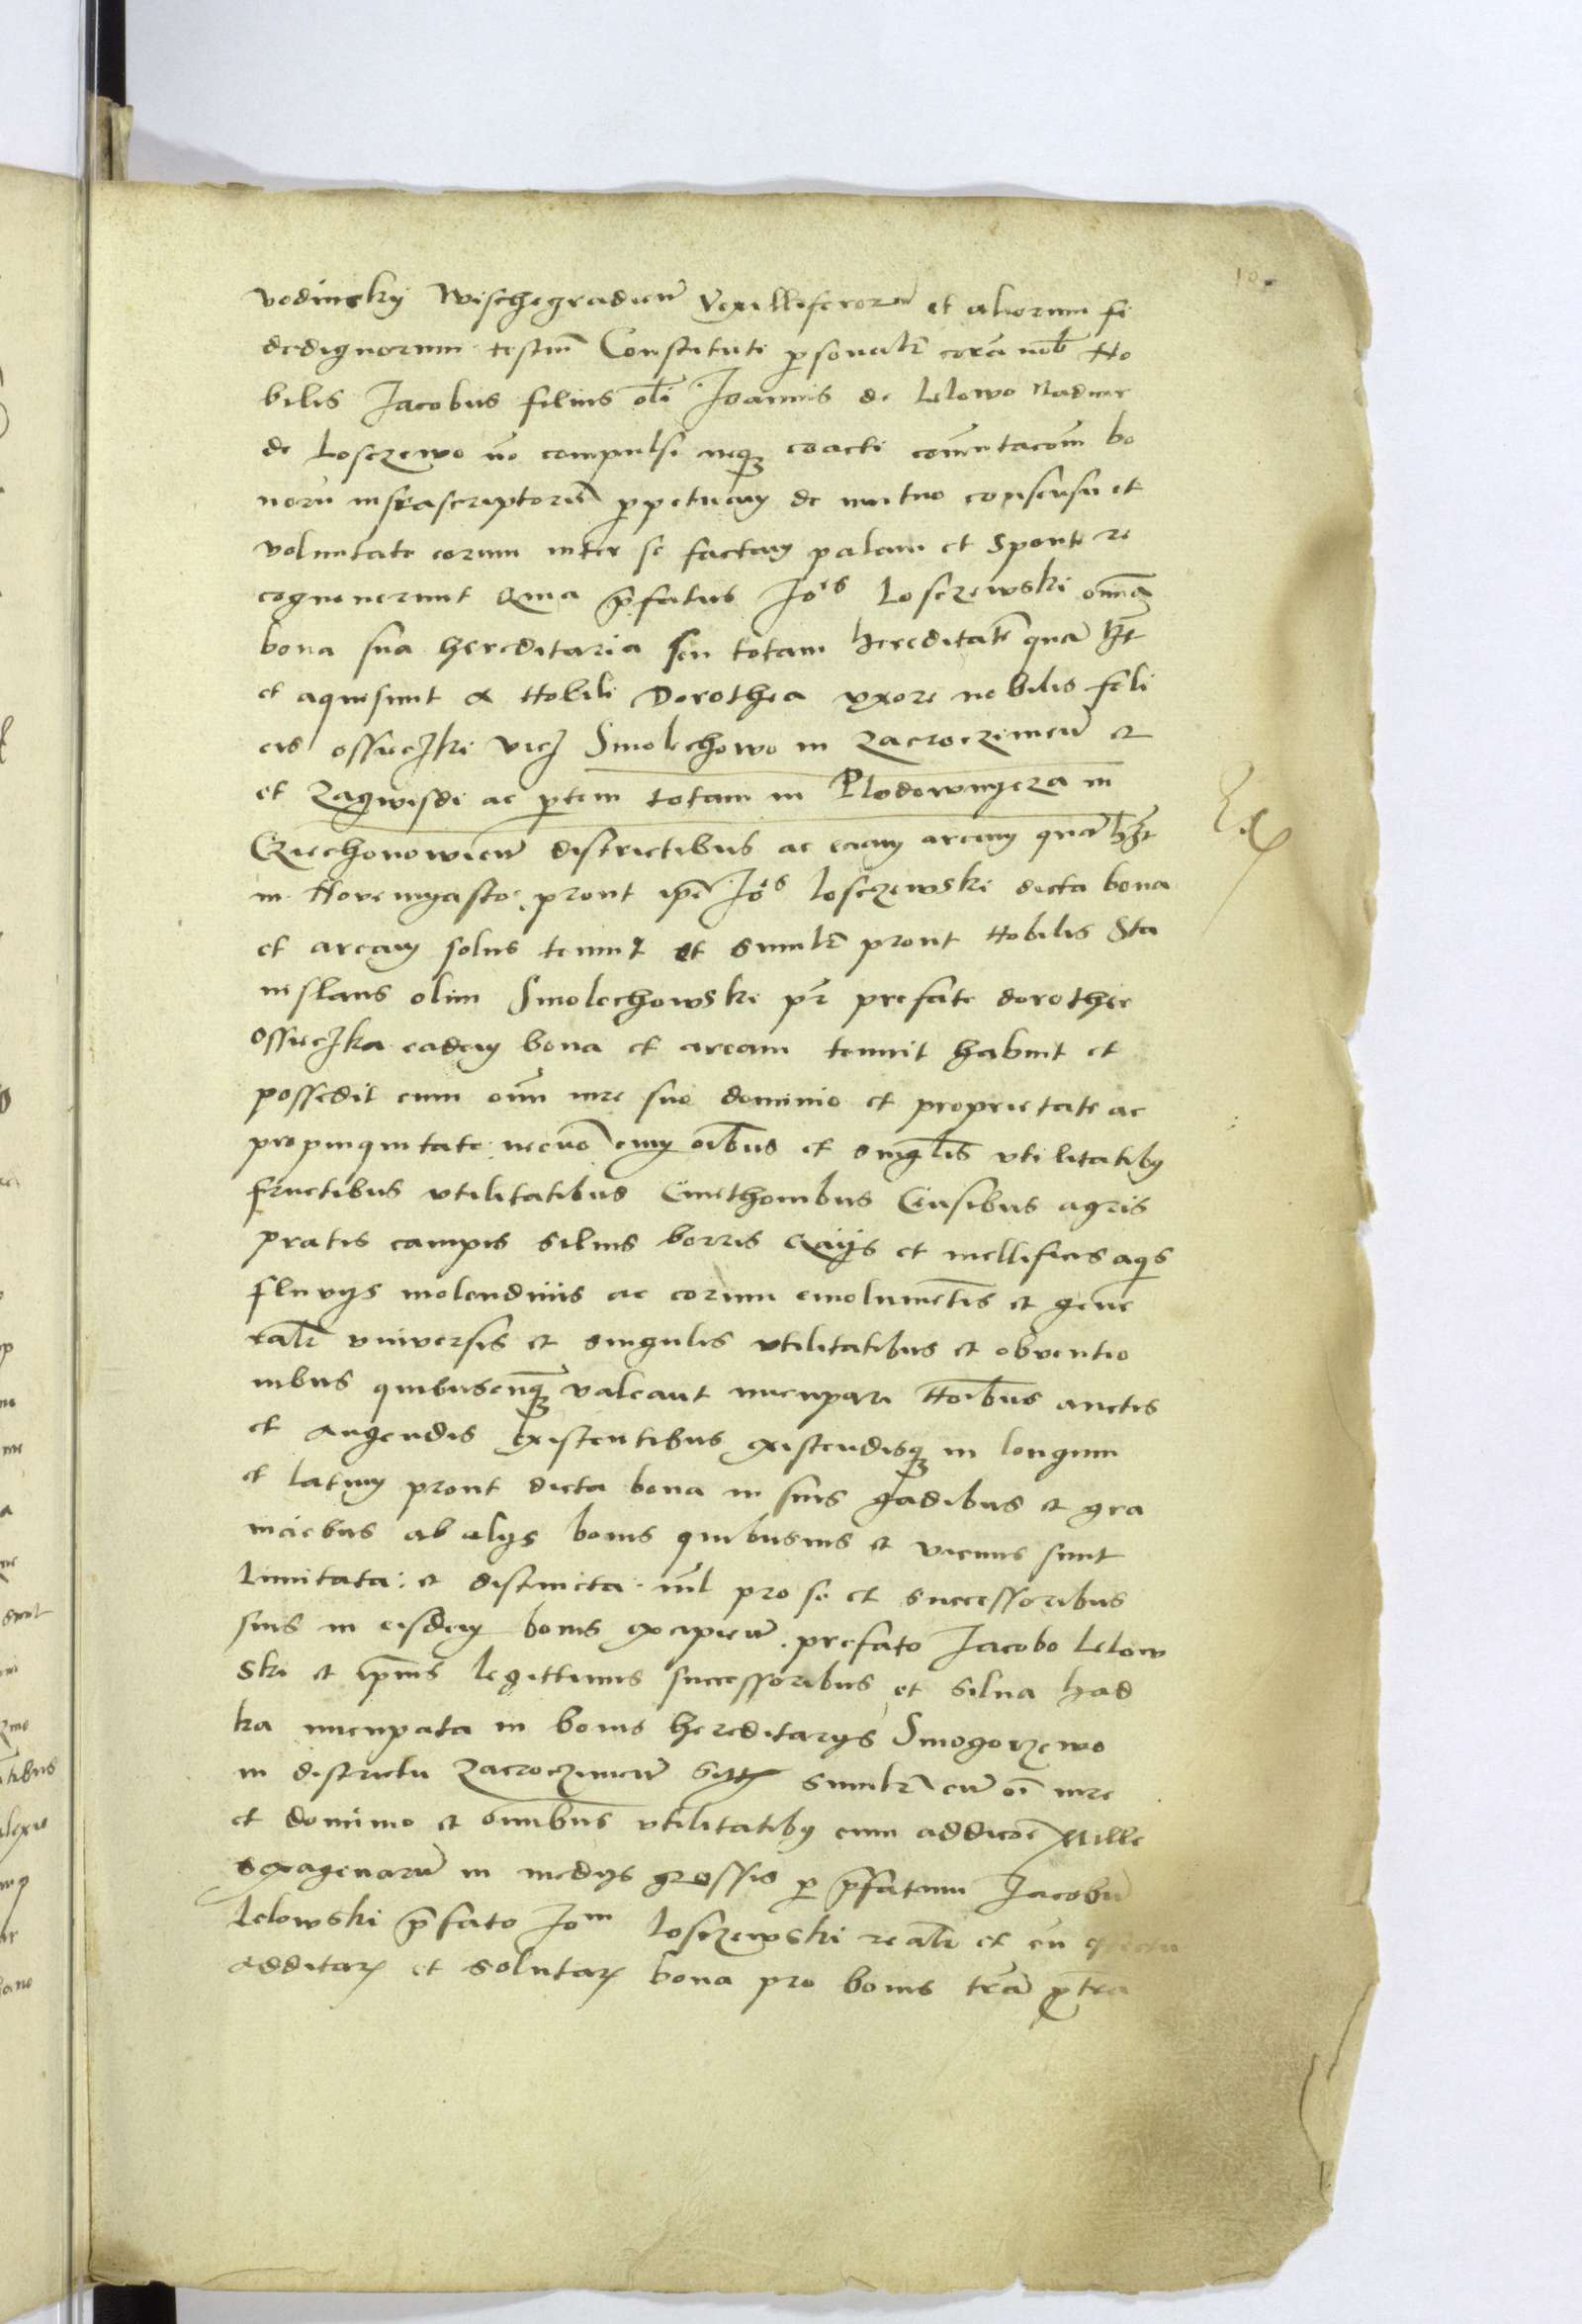 vodinsky Wischegradien̄ Vexilliferorū et aliorum fi
dedignorum testiū Constituti p̱sonalr̄ corā nob̄ No
bilis Jacobus filius olī Joannis de Lelowo
de Losczewo nō compulsi neqꝫ coacti cōmutacōm bo
norū infrascriptorū p̱petuam de mutuo consensu et
voluntate eorum inter se factam palam et sponte re
cognouerunt Quia p̄fatus Joēs Losczewski omnīa
bona sua hereditaria seu totam hereditatē quā hēt
et aquisiuit a Nobili Dorothea vxore nobilis feli
cis ossieczki vicꝫ Smolechowo in Zacroczimen̄ et
et Zagwisdi ac p̱tem totam in Plodownycza in
Cziechonowien̄ districtibus ac eciam aream quā hēt
in Novemyasto prout ip̄e Joēs losczewski dicta bona
et aream solus tenuit et similr̄ prout Nobilis Sta
nislaus olim Smolechowski pr̄ prefate dorothee
ossieczka eadem bona et aream tenuit habuit et
possedit cum omī iure suo dominio et proprietate ac
propinquitate necnō cum oībus et singulīs vtilitatibꝫ
fructibus vtilitatibus Cmethonibus Censibus agris
pratis campis siluis borris Gaijs et mellificijs aqīs
fluvijs molendinis ac eorum emolumētis et gene
ralr̄ vniversis et singulis vtilitatibus et obventio
nibus quibuscunqꝫ valeant nuncupari Noībus auctis
et augendis existentibus existendisqꝫ in longum
et latum prout dicta bona in suis gadibus et gra
niciebus ab alijs bonis quibusuis et vicinis sunt
limitata et distincta nil pro se et successoribus
suis in eisdem bonis excipien̄ prefato Jacobo Lelow
ski et ip̄ius legittimis successoribus et silua had
ka nuncupata in bonis hereditarijs Smogorzewo
in districtu Zacroczimen̄ similr̄ cū oī iure
et dominio et omnibus vtilitatibꝫ cum addicōe Mille
sexagenarū in medijs grossis p̱ p̄fatum Jacobū
Lelowski p̄fato Joīn Losczewski realr̄ et cū effectu
additarꝫ et solutarꝫ bona pro bonis